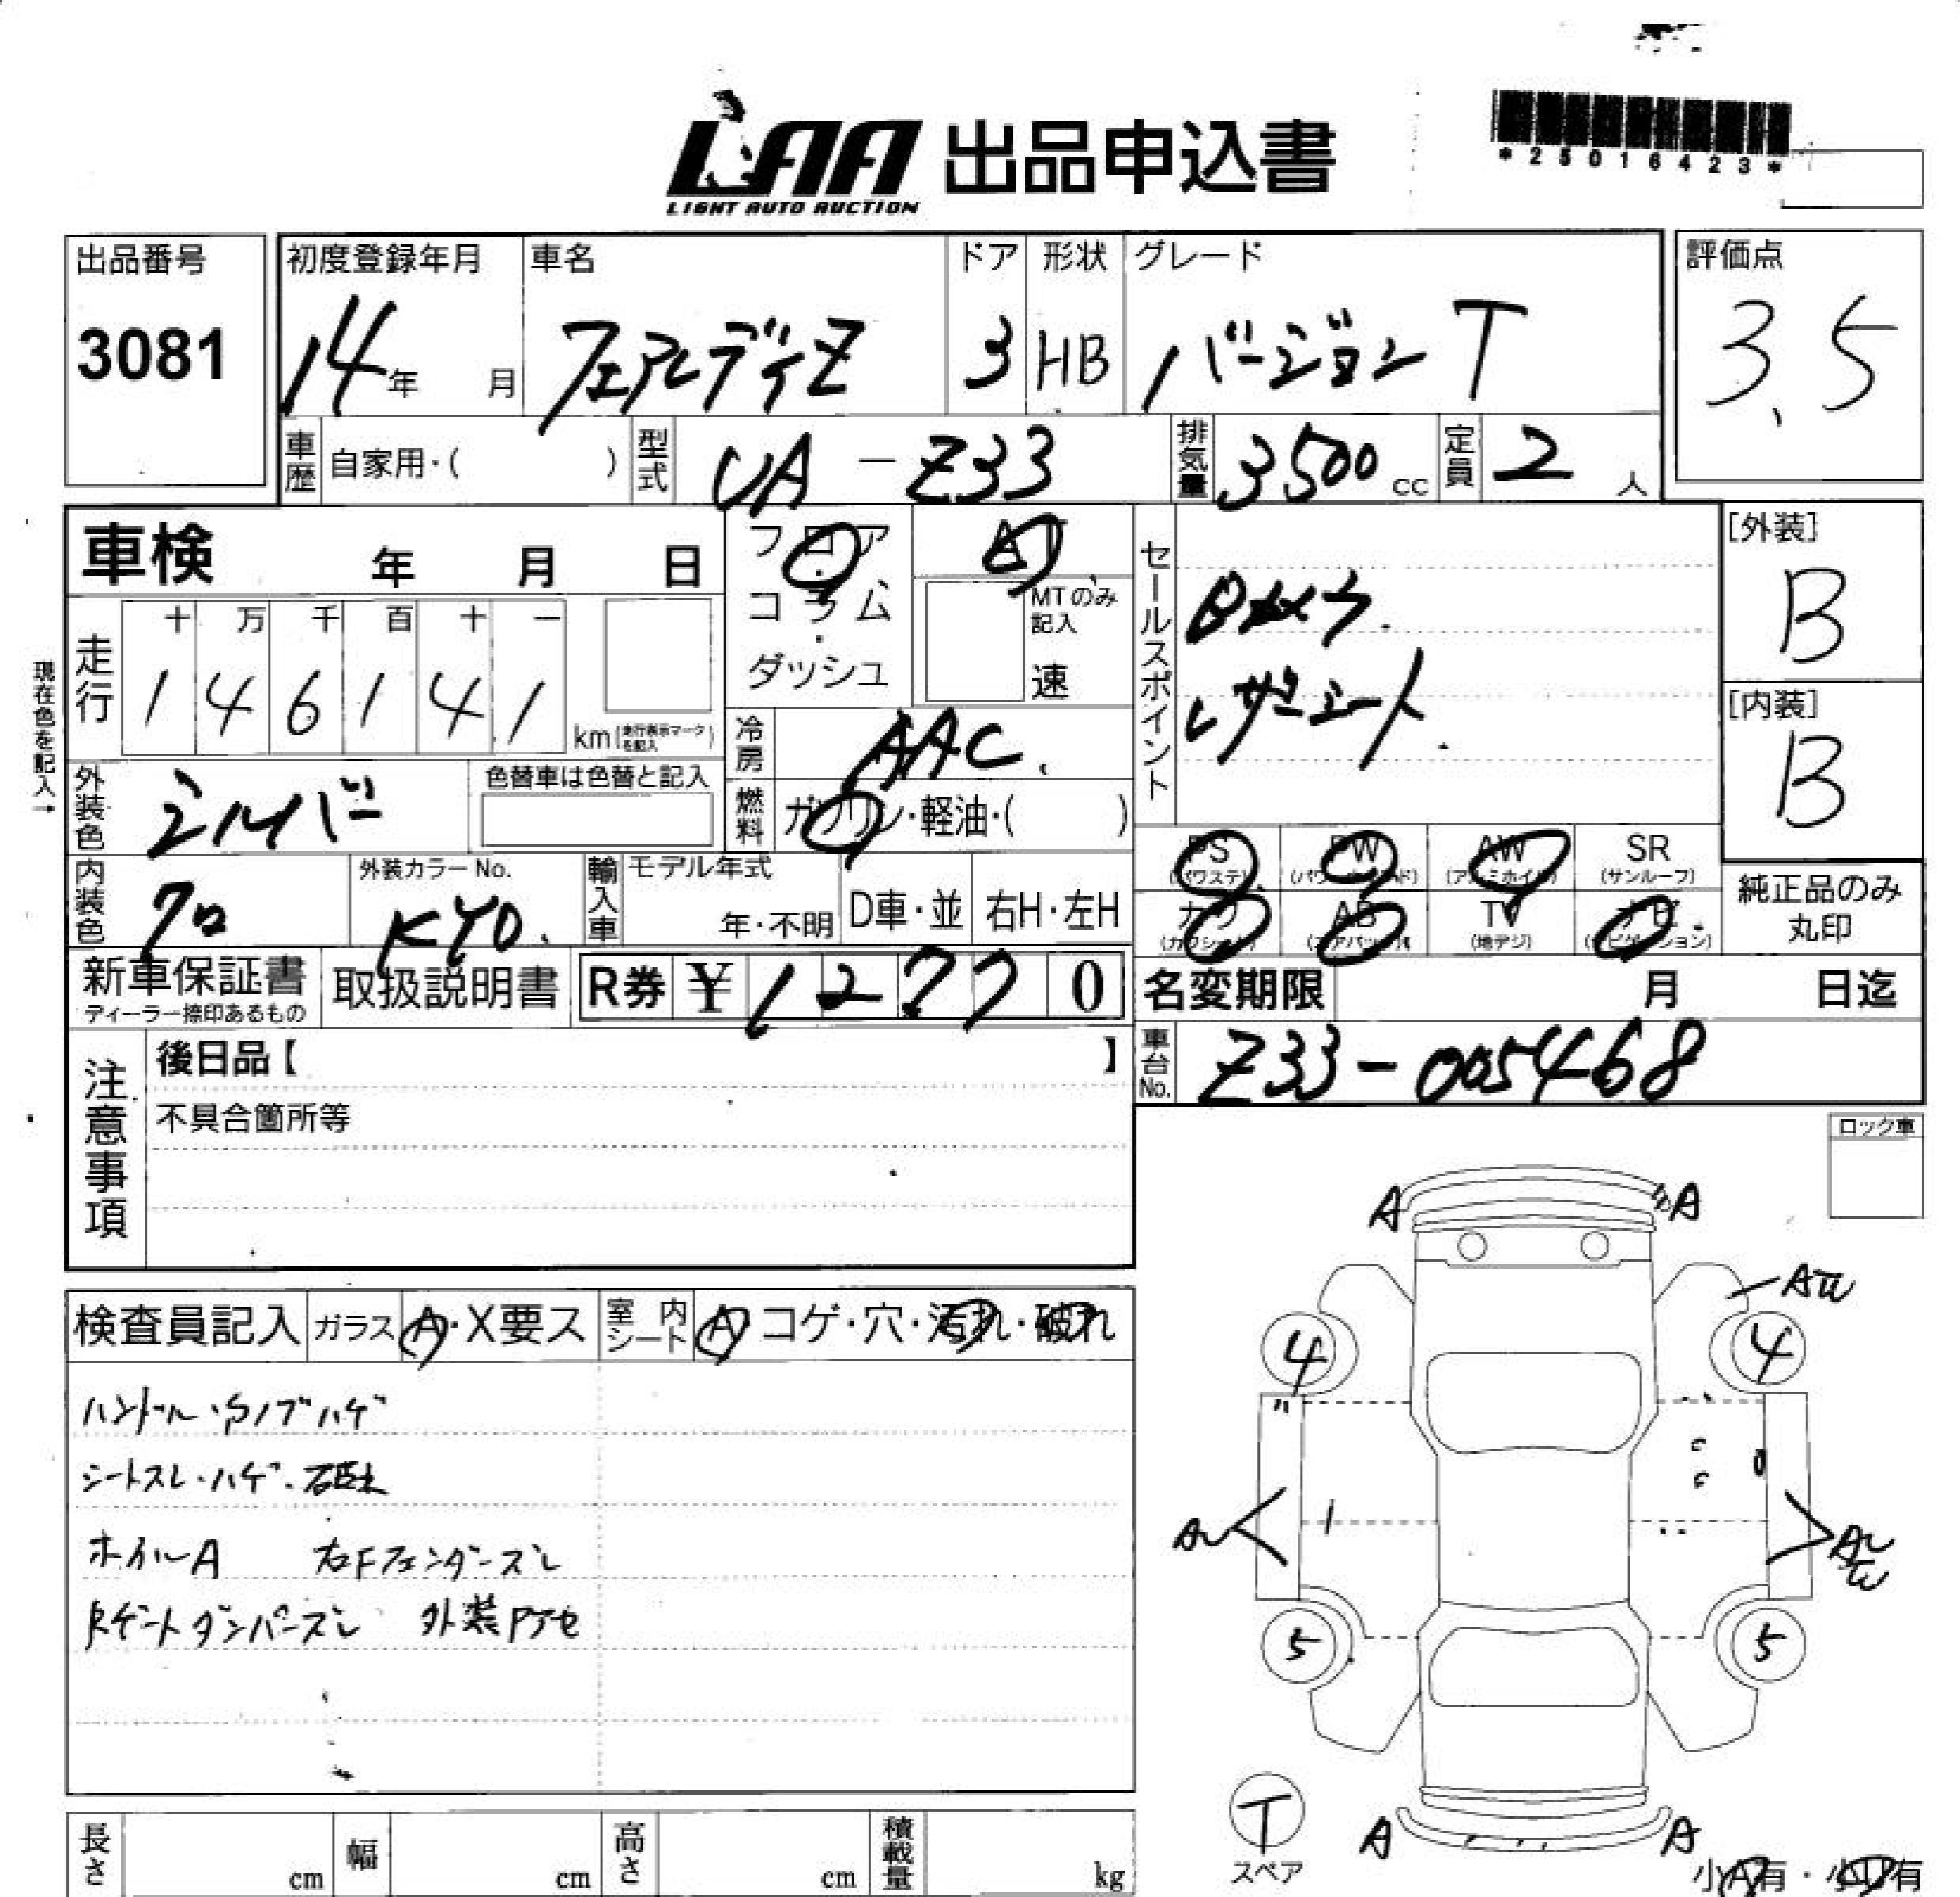 LAA 出品申込書
LIGHT AUTO AUCTION
*25016423*
出品番号 初度登録年月 車名 ドア 形状 グレード 評価点
3081 14年 月 フェアレディZ 3 HB バージョンT 3.5
車歴 自家用・( ) 型式 UA-Z33 排気量 3500cc 定員 2人
車検 年 月 日
フロア AT
コラム
ダッシュ
MTのみ記入
速
セールスポイント
Bカメラ.
レザーシート.
[外装]
B
[内装]
B
現在色を記入→
走行 十 万 千 百 十 一
1 4 6 1 4 1 km (走行表示マークを記入)
冷房 AAC
燃料 ガソリン・軽油・( )
外装色 シルバー 色替車は色替と記入
内装色 クロ 外装カラーNo. KY0. 輸入車 モデル年式 年・不明 D車・並 右H・左H
PS (パワステ) PW (パワーウインド) AW (アルミホイル) SR (サンルーフ)
カワ (カワシート) AB (エアバック) TV (地デジ) ナビ (ナビゲーション)
純正品のみ
丸印
新車保証書 取扱説明書 R券 ¥12770 名変期限 月 日迄
ディーラー捺印あるもの
車台No. Z33-005468
注意事項
後日品【 】
不具合箇所等
ロック車
検査員記入 ガラス A・X要ス 室内シート A コゲ・穴・汚れ・破れ
ハンドル・ノブハゲ
シートスレ・ハゲ・破れ
ホイルA 右Fフェンダーズレ
Rゲートダンパーズレ 外装アセ
A A
AW
4 4
A
5 5
T
スペア
A A
小A有・小U有
長さ cm 幅 cm 高さ cm 積載量 kg